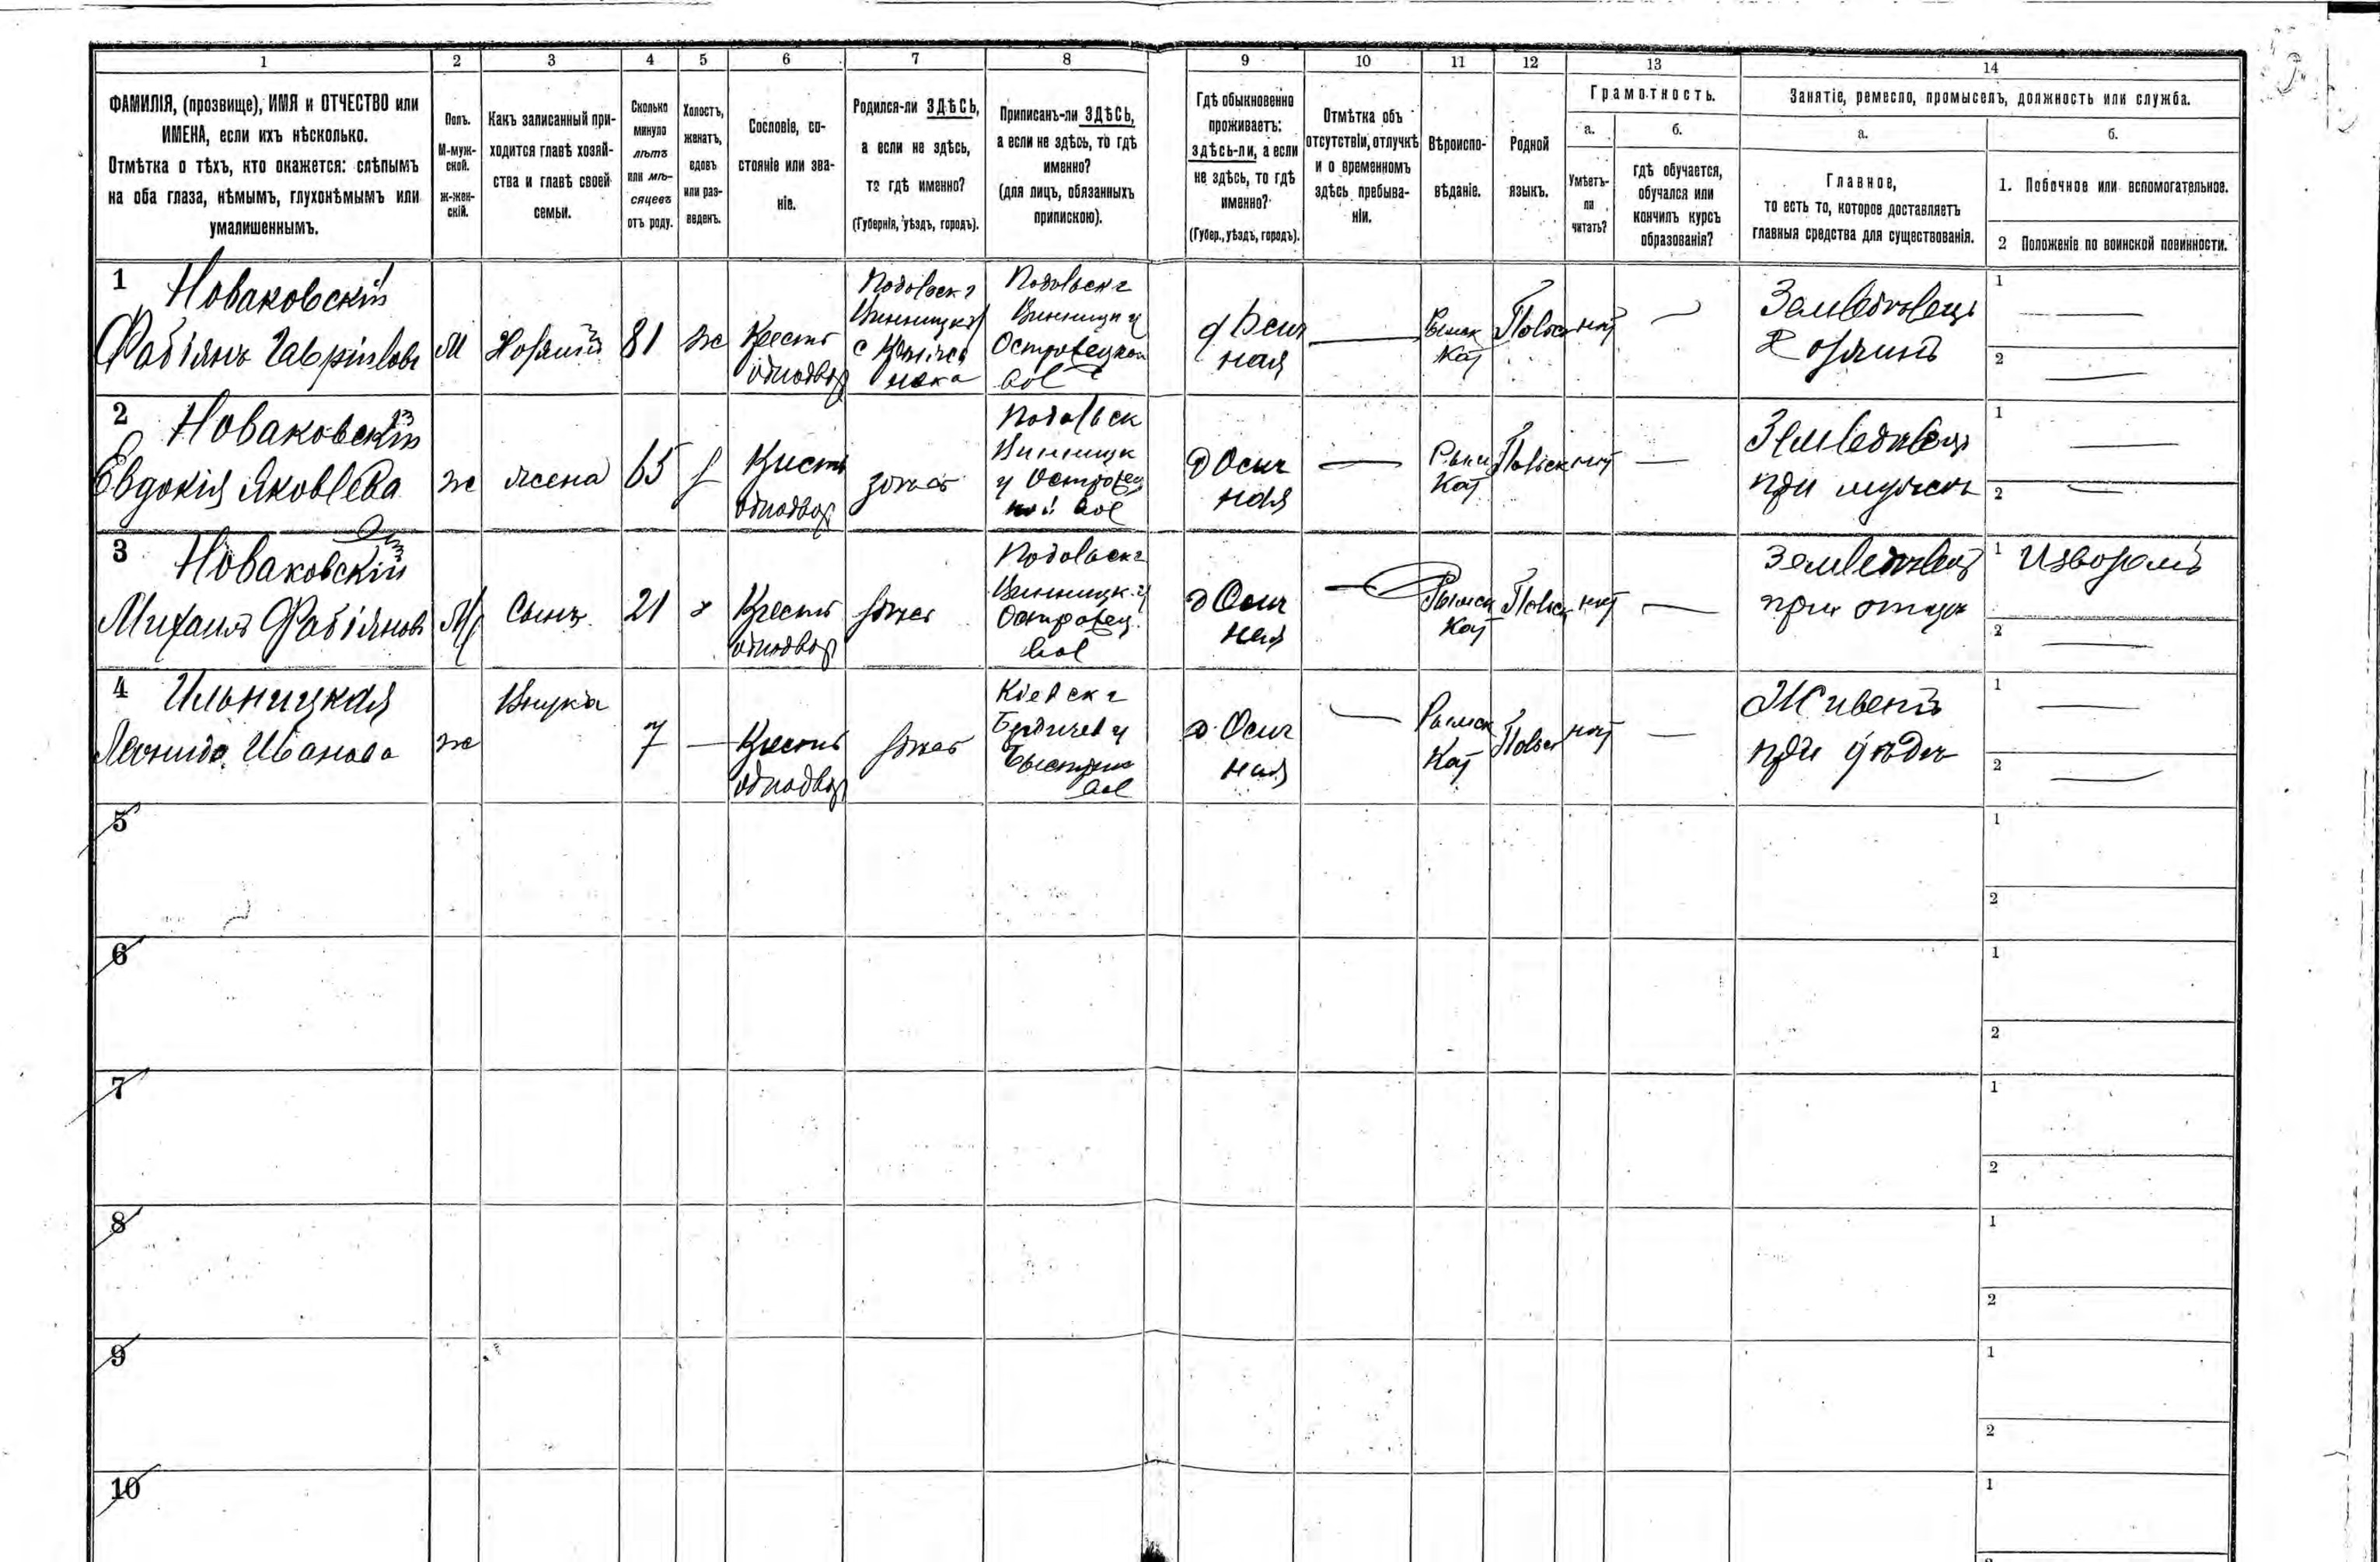 1 2 3 4 5 6 7 8 9 10 11 12 13 14
ФАМИЛІЯ, (прозвище), ИМЯ и ОТЧЕСТВО или
ИМЕНА, если ихъ нѣсколько.
Отмѣтка о тѣхъ, кто окажется: слѣпымъ
на оба глаза, нѣмымъ, глухонѣмымъ или
умалишеннымъ.
Полъ.
М-муж-
ской.
ж-жен-
скій.
Какъ записанный при-
ходится главѣ хозяй-
ства и главѣ своей
семьи.
Сколько
минуло
лѣтъ
или мѣ-
сяцевъ
отъ роду.
Холостъ,
женатъ,
вдовъ
или раз-
веденъ.
Сословіе, со-
стояніе или зва-
ніе.
Родился-ли ЗДѢСЬ,
а если не здѣсь,
то гдѣ именно?
(Губернія, уѣздъ, городъ).
Приписанъ-ли ЗДѢСЬ,
а если не здѣсь, то гдѣ
именно?
(для лицъ, обязанныхъ
припискою).
Гдѣ обыкновенно
проживаетъ:
здѣсь-ли, а если
не здѣсь, то гдѣ
именно?
(Губер., уѣздъ, городъ).
Отмѣтка объ
отсутствіи, отлучкѣ
и о временномъ
здѣсь пребыва-
ніи.
Вѣроиспо-
вѣданіе.
Родной
языкъ.
Грамотность.
а.
Умѣетъ-
ли
читать?
б.
гдѣ обучается,
обучался или
кончилъ курсъ
образованія?
Занятіе, ремесло, промыселъ, должность или служба.
а.
Главное,
то есть то, которое доставляетъ
главныя средства для существованія.
б.
1. Побочное или вспомогательное.
2 Положеніе по воинской повинности.
1 Новаковскій
Фабіянъ
М
81
ж
Крест
однодвор
Подольск г
Подольск г
Винницк у
Островецкой
вол
ная
Римск
Кат
Польск
нѣт
Хозяинъ
1
2
2 Новаковскій
Евдокія Яковлева
ж
жена
65
однодвор
Подольск
Винницк
у Островец
кой вол
д Осич
ная
Кат
Польск
нѣт
при мужѣ
1
2
3 Новаковскій
Михаил Фабіянов
М
Сынъ
21
х
Крестъ
однодвор
Подольск г
Винницк у
Островец.
вол
д Осич
ная
Римск
Кат
Польск
нѣт
при отцѣ
1 Извозомъ
2
4 Ильницкая
Иванова
ж
Внука
7
однодвор
Кіевск г
Бердичев у
вол
д. Осич
ная
Римск
Кат
Польск
нѣт
Живетъ
при дѣдѣ
1
2
5
1
2
6
1
2
7
1
2
8
1
2
9
1
2
10
1